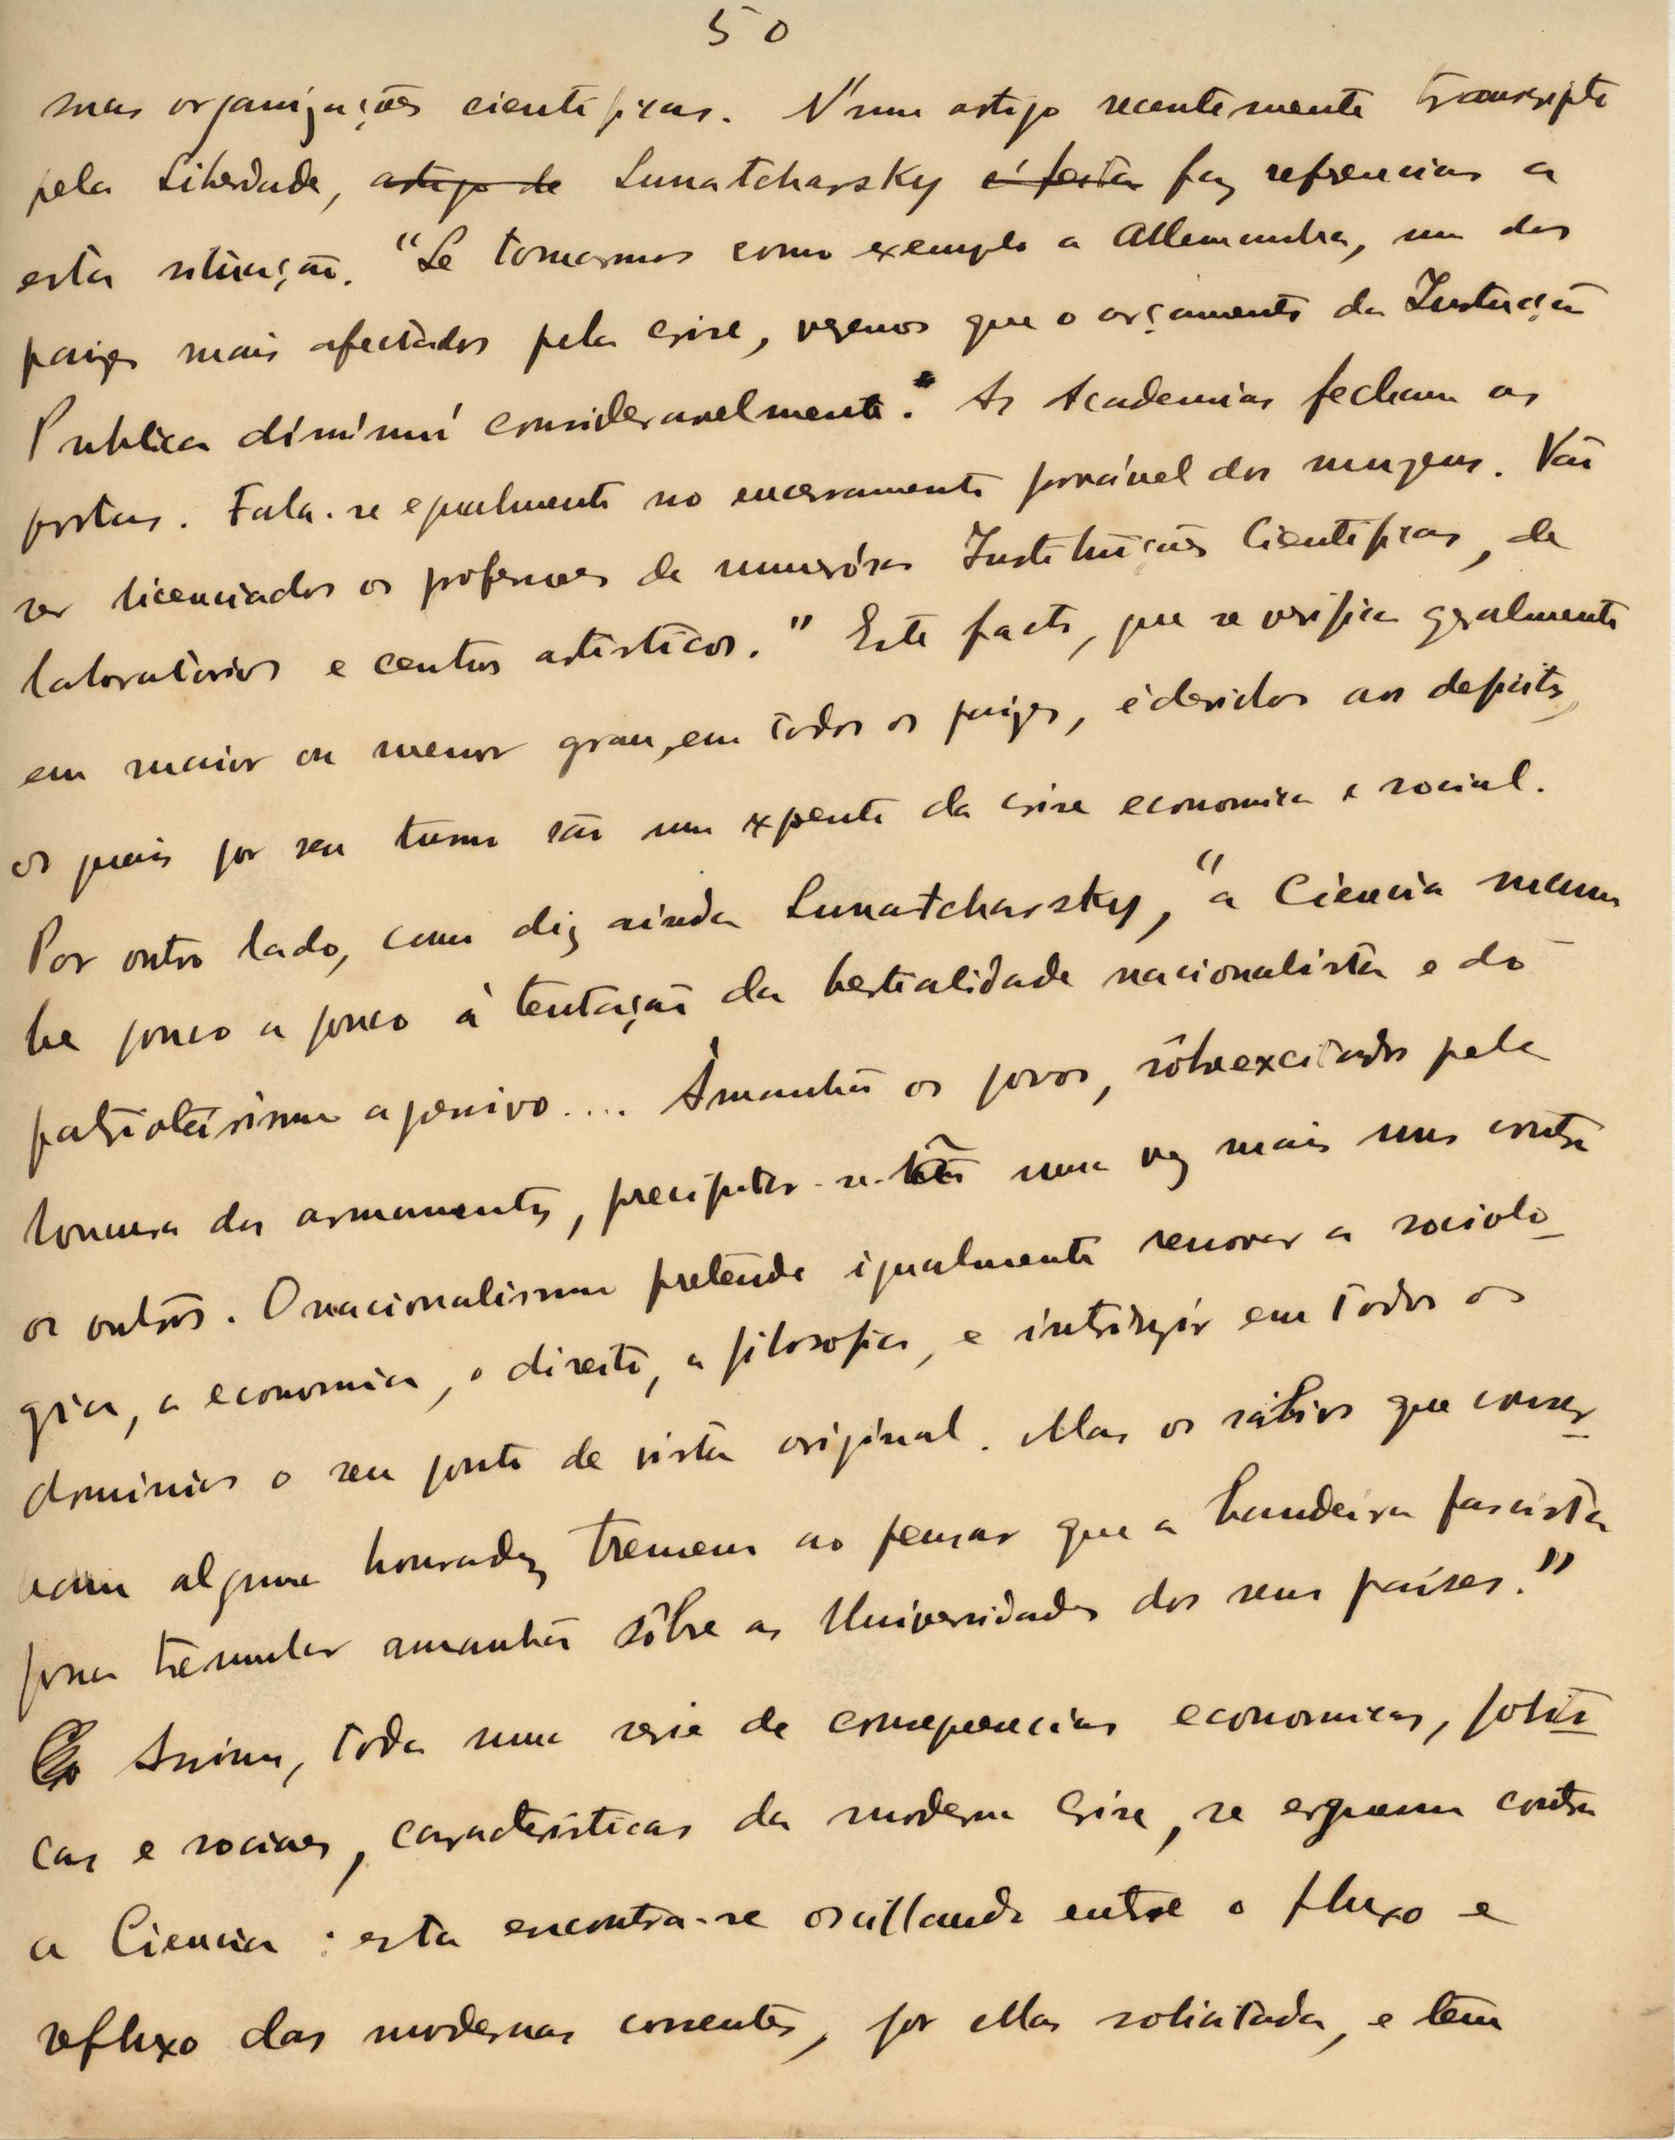 50
suas organizações cientificas. N'um artigo recentemente transcripto
pela Liberdade, artigo de Lunatcharsky é feita faz referencias a
esta situação. "Se tomarmos como exemplo a Allemanha, um dos
paizes mais afectados pela crise, vêmos que o orçamento da Instrução
Publica diminui consideravelmente. As Academias fecham as
portas. Fala-se egualmente no encerramento possível dos muzeus. Vão
ser licenciados os professores de numerósas Instituições Cientificas, de
laboratórios e centros artisticos." Este facto, que se verifica geralmente
em maior ou menor grau, em todos os paizes, é devido aos deficits,
os quais por seu turno são um expoente da crise economica e social.
Por outro lado, como diz ainda Lunatcharsky, "a Ciencia sucum
be pouco a pouco à tentação da bestialidade nacionalista e do
patriotismo agressivo.... Àmanhã os povos, sôbreexcitados pela
loucura dos armamentos, precipitar-se-hão uma vez mais uns contra
os outros. O nacionalismo pretende igualmente renovar a sociolo-
gia, a economia, o direito, a filosofia, e introduzir em todos os
dominios o seu ponto de vista original. Mas os sábios que conser-
vam alguma honradez tremem ao pensar que a bandeira fascista
possa tremular amanhã sôbre as Universidades dos seus países."
Assim, toda uma serie de consequencias economicas, politi-
cas e sociaes, caracteristicas da moderna crise, se erguem contra
a Ciencia: esta encontra-se oscillando entre o fluxo e
refluxo das modernas correntes, por ellas solicitada, e têm